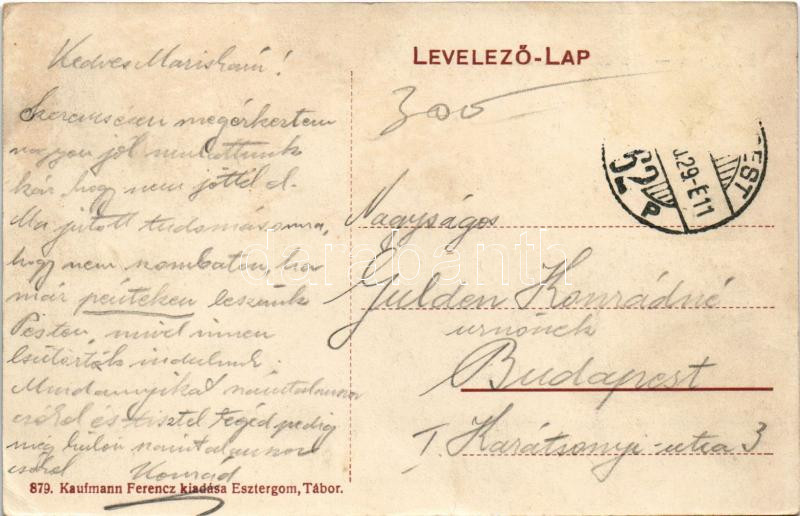 Kedves Mariskám!
Szerencsésen megérkeztem
nagyon jól mulattunk
kár hogy nem jöttél el.
Ma jutott tudomásomra,
hogy nem szombaton, ha
már pénteken leszünk
Pesten, mivel innen
csütörtök indulunk.
Mindannyikat számtalanszor
csókol és tisztel Téged pedig
még külön számtalanszor
csókol Konrád
879. Kaufmann Ferencz kiadása Esztergom, Tábor.
LEVELEZŐ-LAP
300
62
P
.29-E11
EST
Nagyságos
Gulden Konrádné
urnőnek
Budapest
I. Karátsonyi-utca 3
darabanth